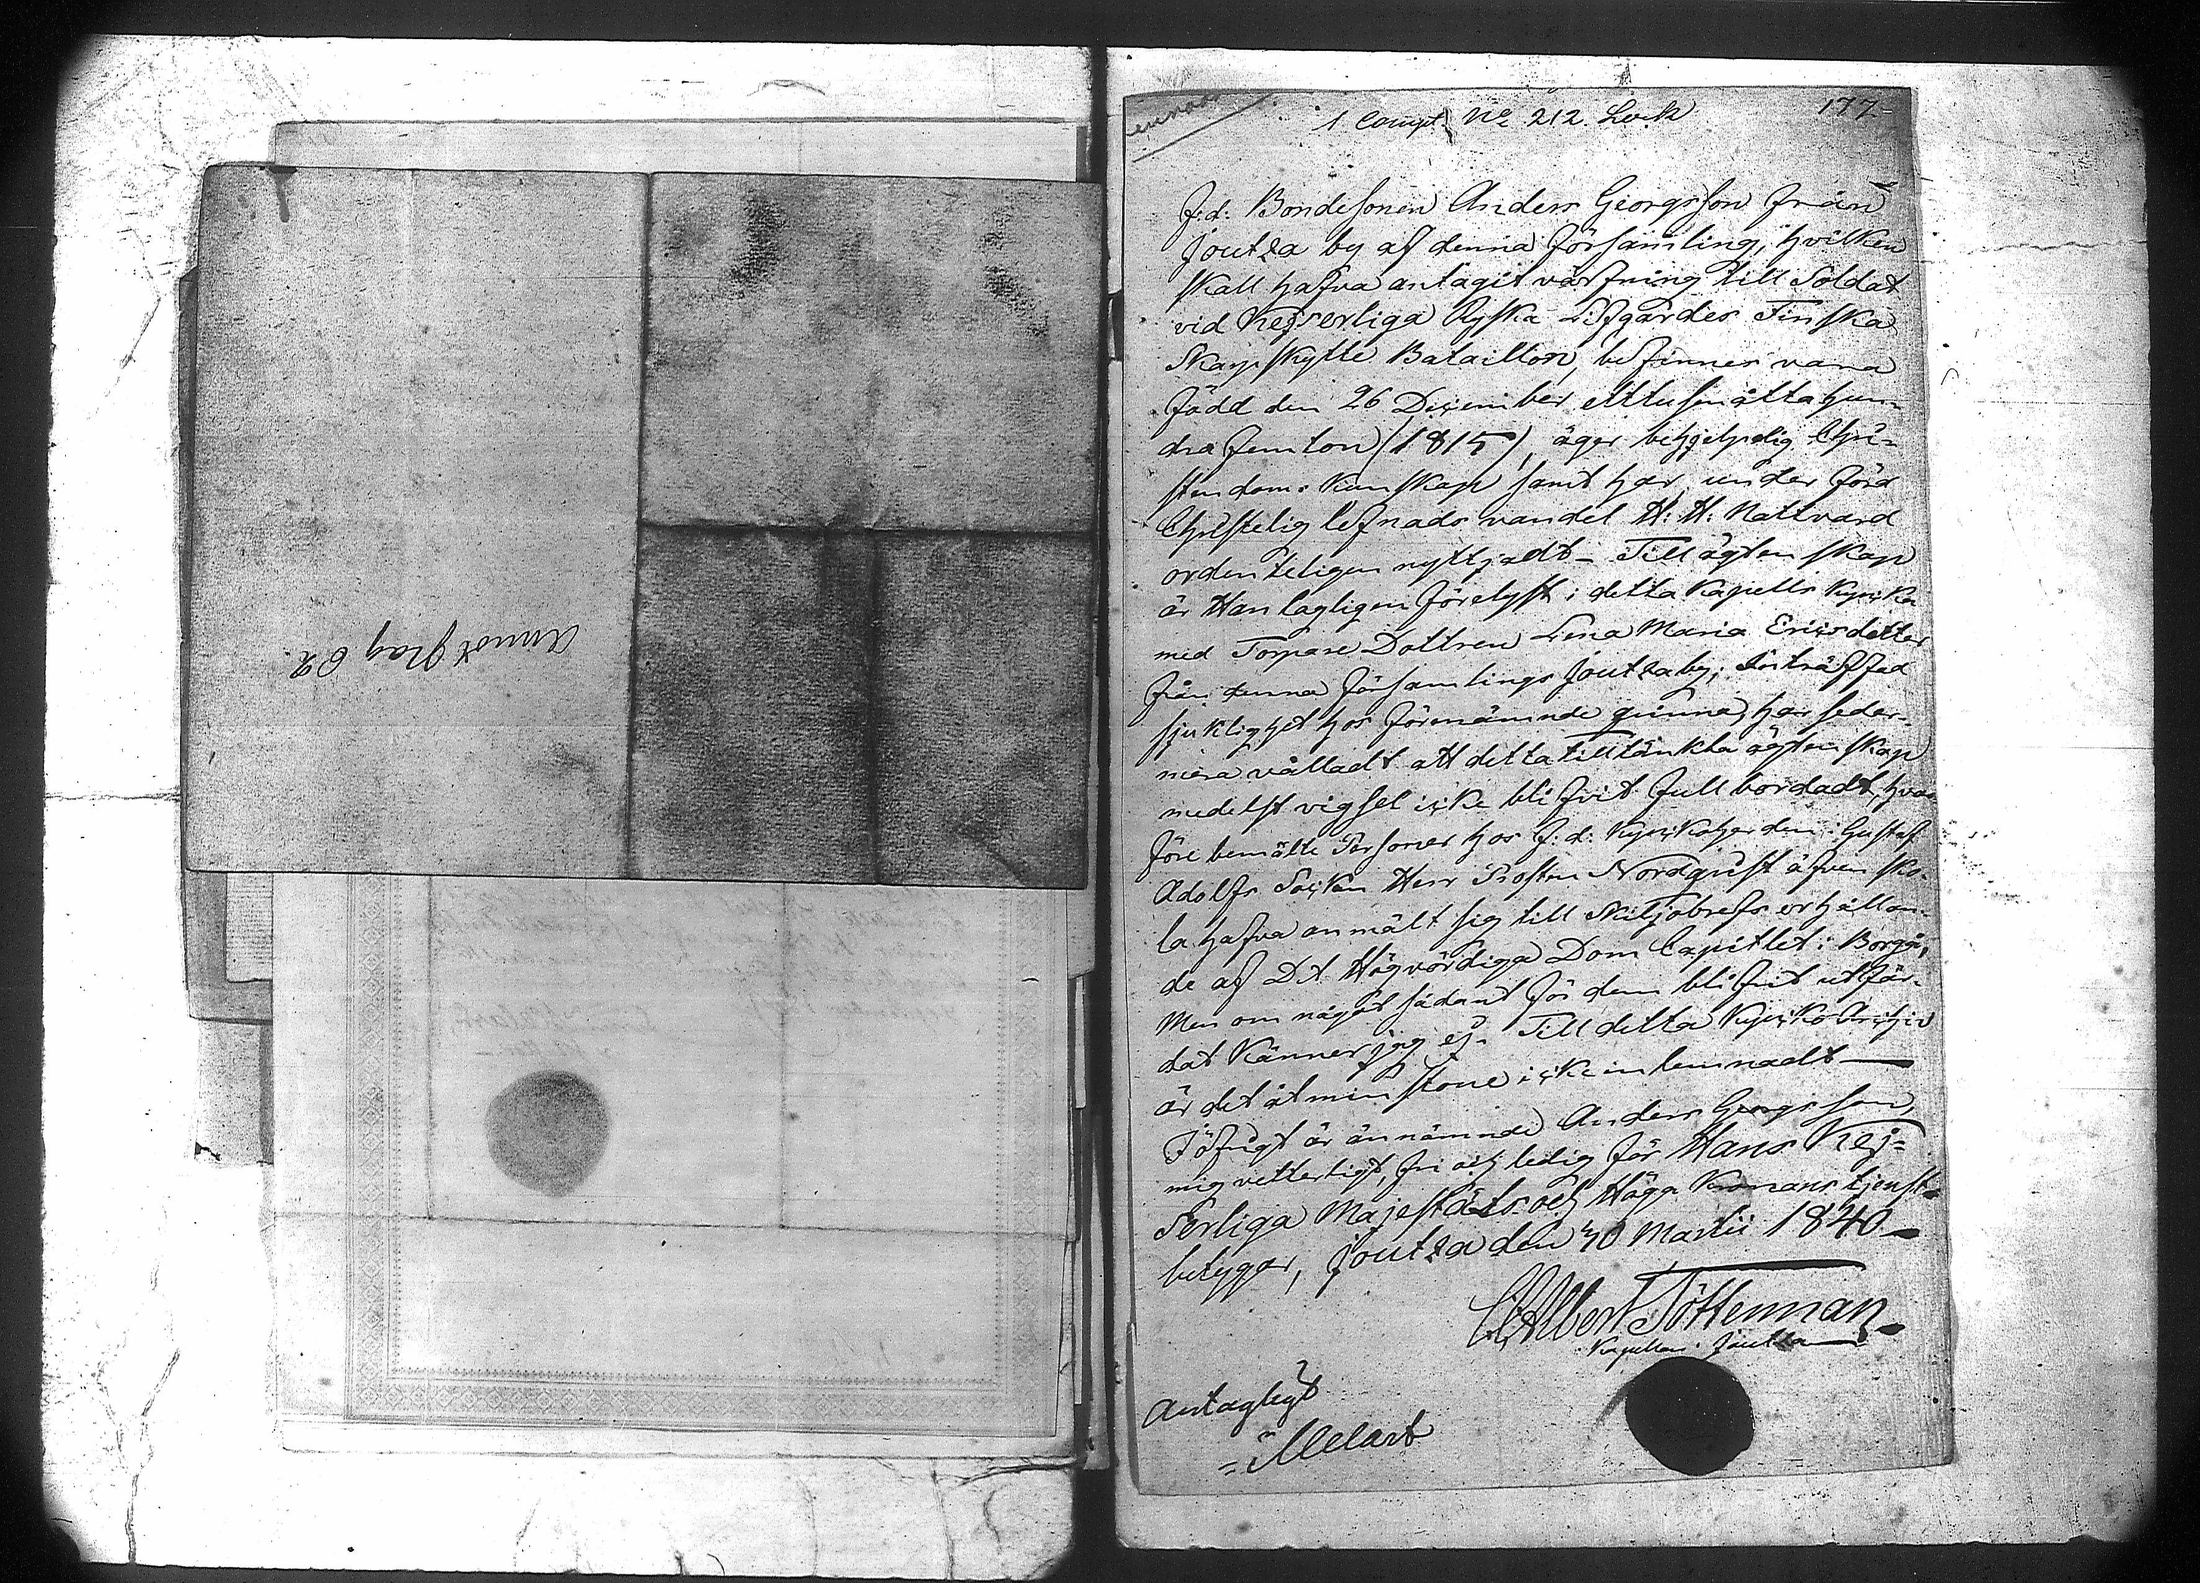 Annot pag 62.
1 Compt No 212. Lock
177.
F:d: Bondesonen Anders Georgsson från
Joutza by af denna församling, hvilken
skall hafva antagit värfning till Soldat
vid Kejserliga Ryska Lifgardes Finska
Skarpskytte Bataillon, befinnes vara
född den 26 December ettusenåttahun-
dra femton (1815), äger behjelpelig Chri-
stendoms kunskap samt har, under förd
Christelig lefnads vandel H: H: Nattvard
ordenteligen nyttjadt – Till ägtenskap
är Han lagligen förelyst i detta Kapells Kyrcka
med Torpare Dottren Lena Maria Ericsdotter
från denna församlings Joutza by; Inträffad
sjuklighet hos förenämnde qvinna, har seder-
mera vålladt att detta tilltänkta ägtenskap
medelst vigsel icke blifvit fullbordadt, hvar
före bemälte Personer hos f: d: Kyrckoherden i Gustaf
Adolfs Socken Herr Prosten Nordqvist äfven sko-
la hafva anmält sig till Skiljobrefs erhållan-
de af Dt Högvördiga Dom Capitlet i Borgå;
Men om något sådant för dem blifvit utfär-
dat känner jag ej. Till detta Kyrcko Archiv
är det åtminstone icke inlemnadt —
Iöfrigt är ännämnde Anders Georgsson,
mig vetterligt, fri och ledig för Hans Kej-
serliga Majestäts och Höga Kronans tjenst.
betygar, Joutza den 30 Martii 1840 –
C Albert Töttermar
Kapellan i Joutza
Antagligt
Melart